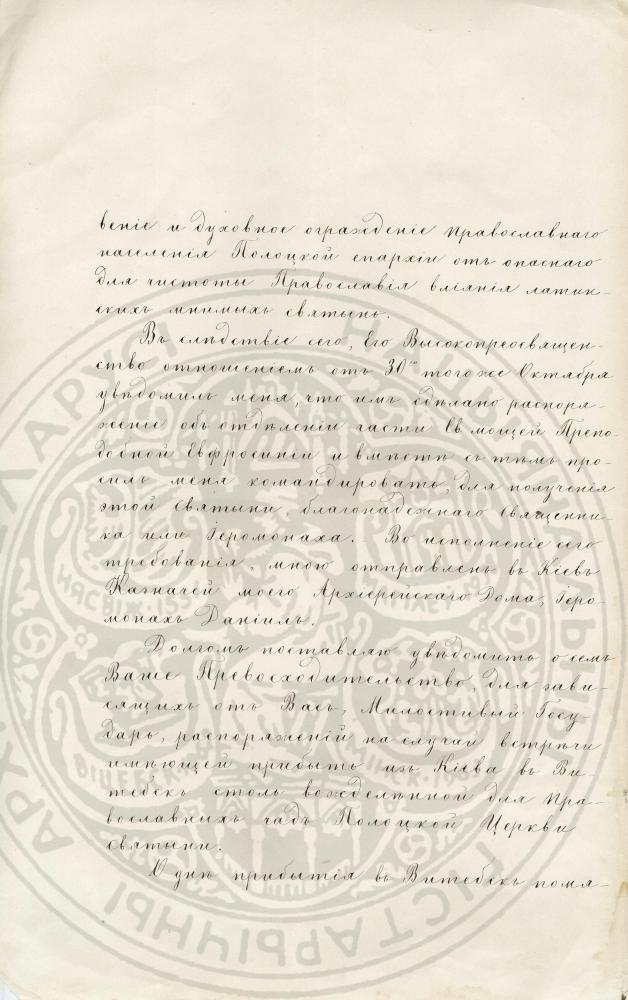 веніе и духовное огражденіе православнаго
населенія Полоцкой епархіи отъ опаснаго
для чистоты Православія вліянія латин-
скихъ мнимыхъ святынь.
Въ слѣдствіе сего, Его Высокопреосвящен-
ство отношеніемъ отъ 30го того же Октября
увѣдомилъ меня, что имъ сдѣлано распоря-
женіе объ отдѣленіи части Св. мощей Препо-
добной Евфросиніи и вмѣстѣ съ тѣмъ про-
силъ меня командировать, для полученія
этой святыни, благонадежнаго священни-
ка или Іеромонаха. - Во исполненіе сего
требованія, мною отправленъ въ Кіевъ
Казначей моего Архіерейскаго Дома, Іеро-
монахъ Даніилъ.
Долгомъ поставляю увѣдомить о семъ
Ваше Превосходительство, для зави-
сящихъ отъ Васъ, Милостивый Госу-
дарь, распоряженій на случай встрѣчи
имѣющей прибыть изъ Кіева въ Ви-
тебскъ столь вожделѣнной для пра-
вославныхъ чадъ Полоцкой Церкви
святыни.
О днѣ прибытія въ Витебскъ помя-
АРХІЎ
НЯСВІЖ
ГІСТАРЫЧНЫ